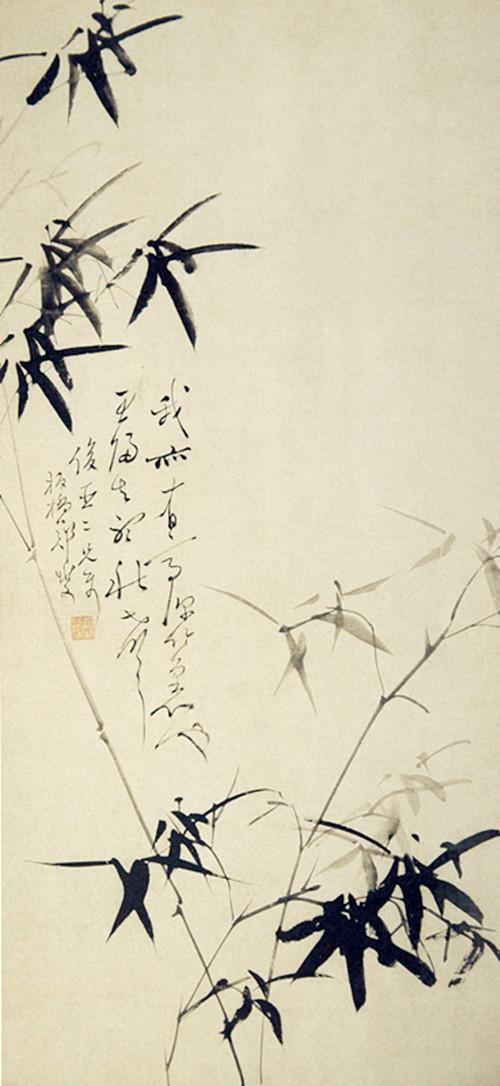 我亦有亭深竹裏也
思歸去聽秋聲
俊亞二兄
板橋鄭燮